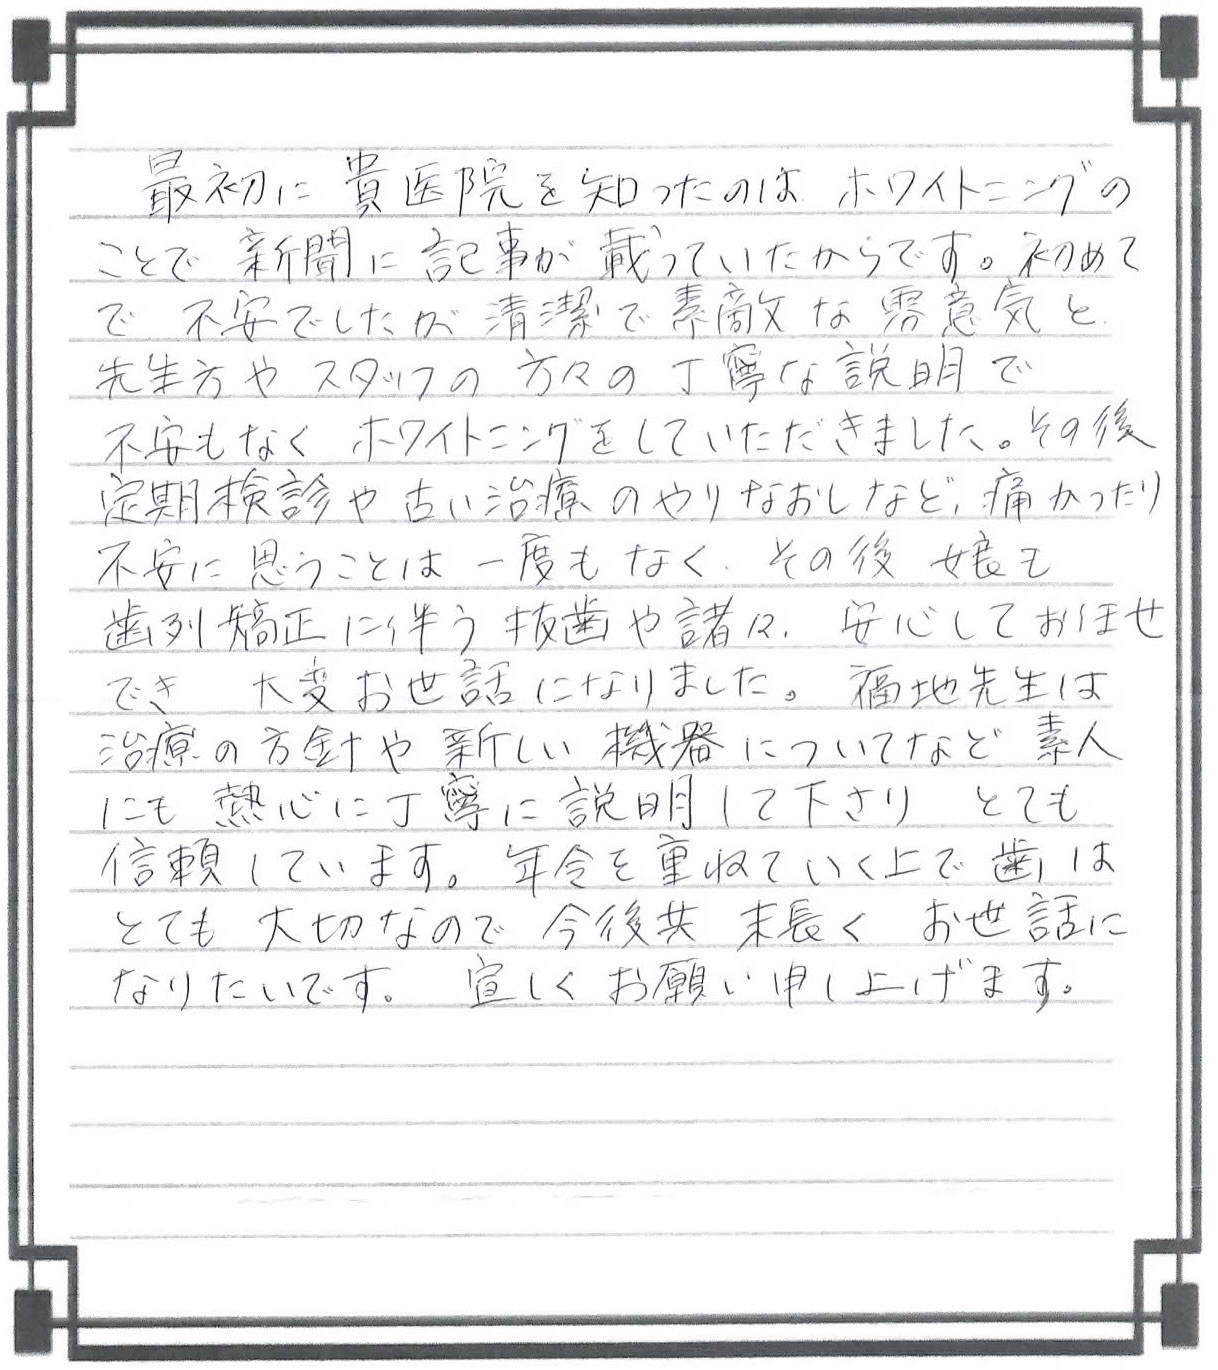 最初に 貴医院を知ったのは ホワイトニングの
ことで 新聞に 記事が 載っていたからです。初めて
で 不安でしたが 清潔で素敵な雰意気と
先生方や スタッフの 方々の 丁寧な説明で
不安もなく ホワイトニングをしていただきました。その後
定期検診や 古い治療のやりなおしなど、痛かったり
不安に 思うことは 一度も なく、その後 娘も
歯列矯正に伴う 抜歯や諸々、安心しておまかせ
でき 大変お世話になりました。福地先生は
治療の方針や 新しい 機器についてなど 素人
にも 熱心に丁寧に説明して下さり とても
信頼しています。年令を重ねていく上で 歯は
とても 大切なので 今後共 末長く お世話に
なりたいです。 宜しくお願い申し上げます。